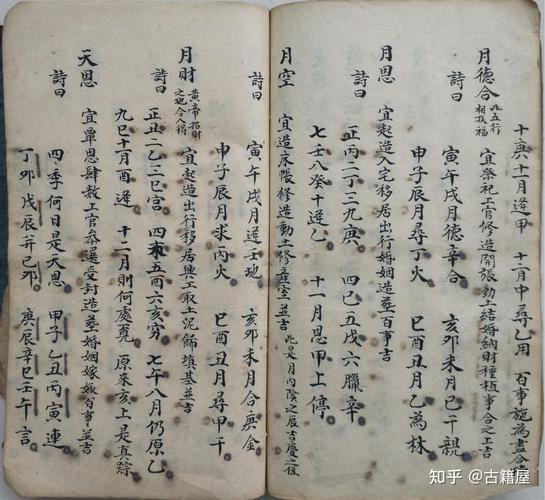 十庚十一月逢甲 十二月中尋乙用 百事施為盡合
月德合 此五行相扶福 宜祭祀上官修造開張動土結婚納財種植事合之上吉
詩曰 寅午戌月德辛合 亥卯未月己干親
申子辰月尋丁火 巳酉丑月乙為林
月恩 宜起造入宅移居出行婚姻造葬百事吉
詩曰 正丙二丁三九庚 四己五戊六臘辛
七壬八癸十逢乙 十一月恩甲上停
月空 宜造床帳修造動土修產室並吉 此是月內陰之辰吉慶之後
詩曰 寅午戌月逢壬地 亥卯未月合庚金
申子辰月求丙火 巳酉丑月尋甲干
月財 黃帝招財之地令人得 宜起造出行移居興工取土泥飾填基並吉
詩曰 正丑二乙三巳宮 四未五酉六亥窮 七午八月仍原乙
九巳十月酉逢 十二月則何處覓 原來亥上是真踪
天恩 宜覃恩肆赦上官參選受封造葬婚姻嫁娶百事並吉
詩曰 四季何日是天恩 甲子乙丑丙寅連
丁卯戊辰并己卯 庚辰辛巳壬午言
知乎 @古籍屋